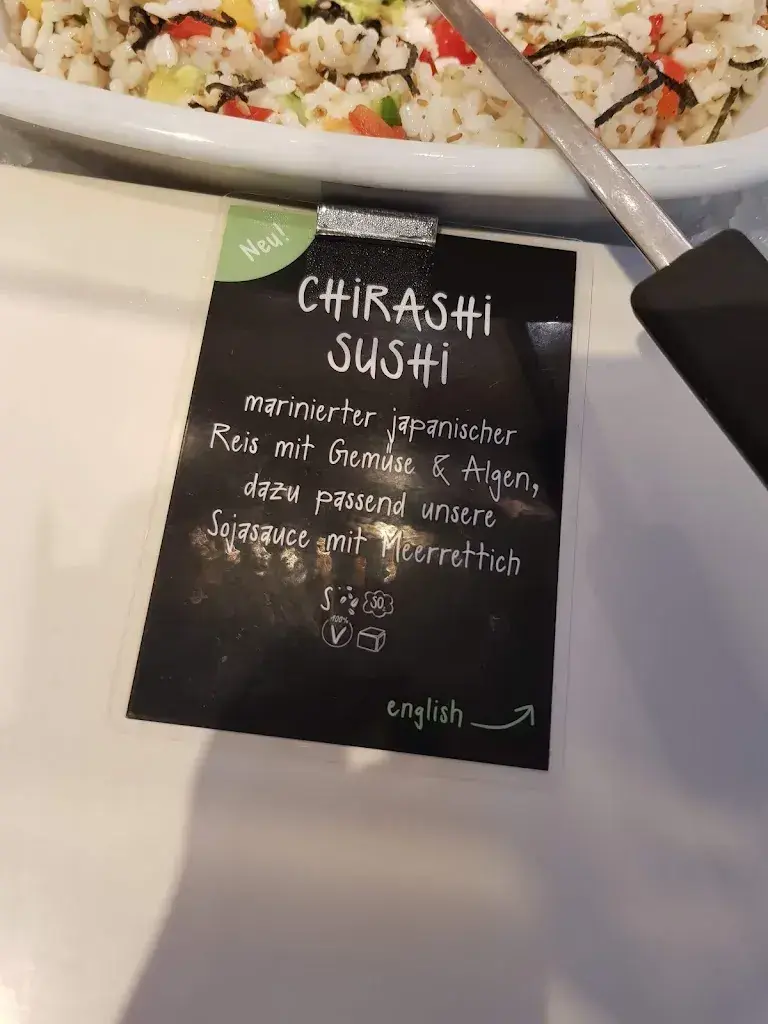 Neu!
CHiRASHi
SUSHi
marinierter japanischer
Reis mit Gemüse & Algen,
dazu passend unsere
Sojasauce mit Meerrettich
S SO₂
100%
V
english